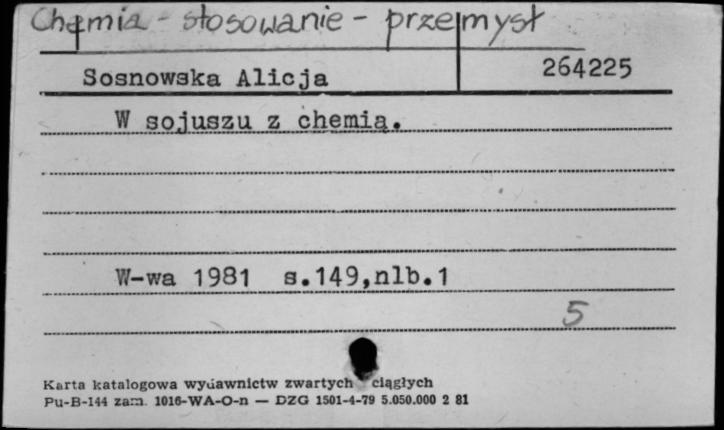 Chemia - stosowanie - przemysł
Sosnowska Alicja
264225
W sojuszu z chemią.
W-wa 1981 s.149,nlb.1
5
Karta katalogowa wydawnictw zwartych ciągłych
Pu-B-144 zam. 1016-WA-O-n — DZG 1501-4-79 5.050.000 2 81